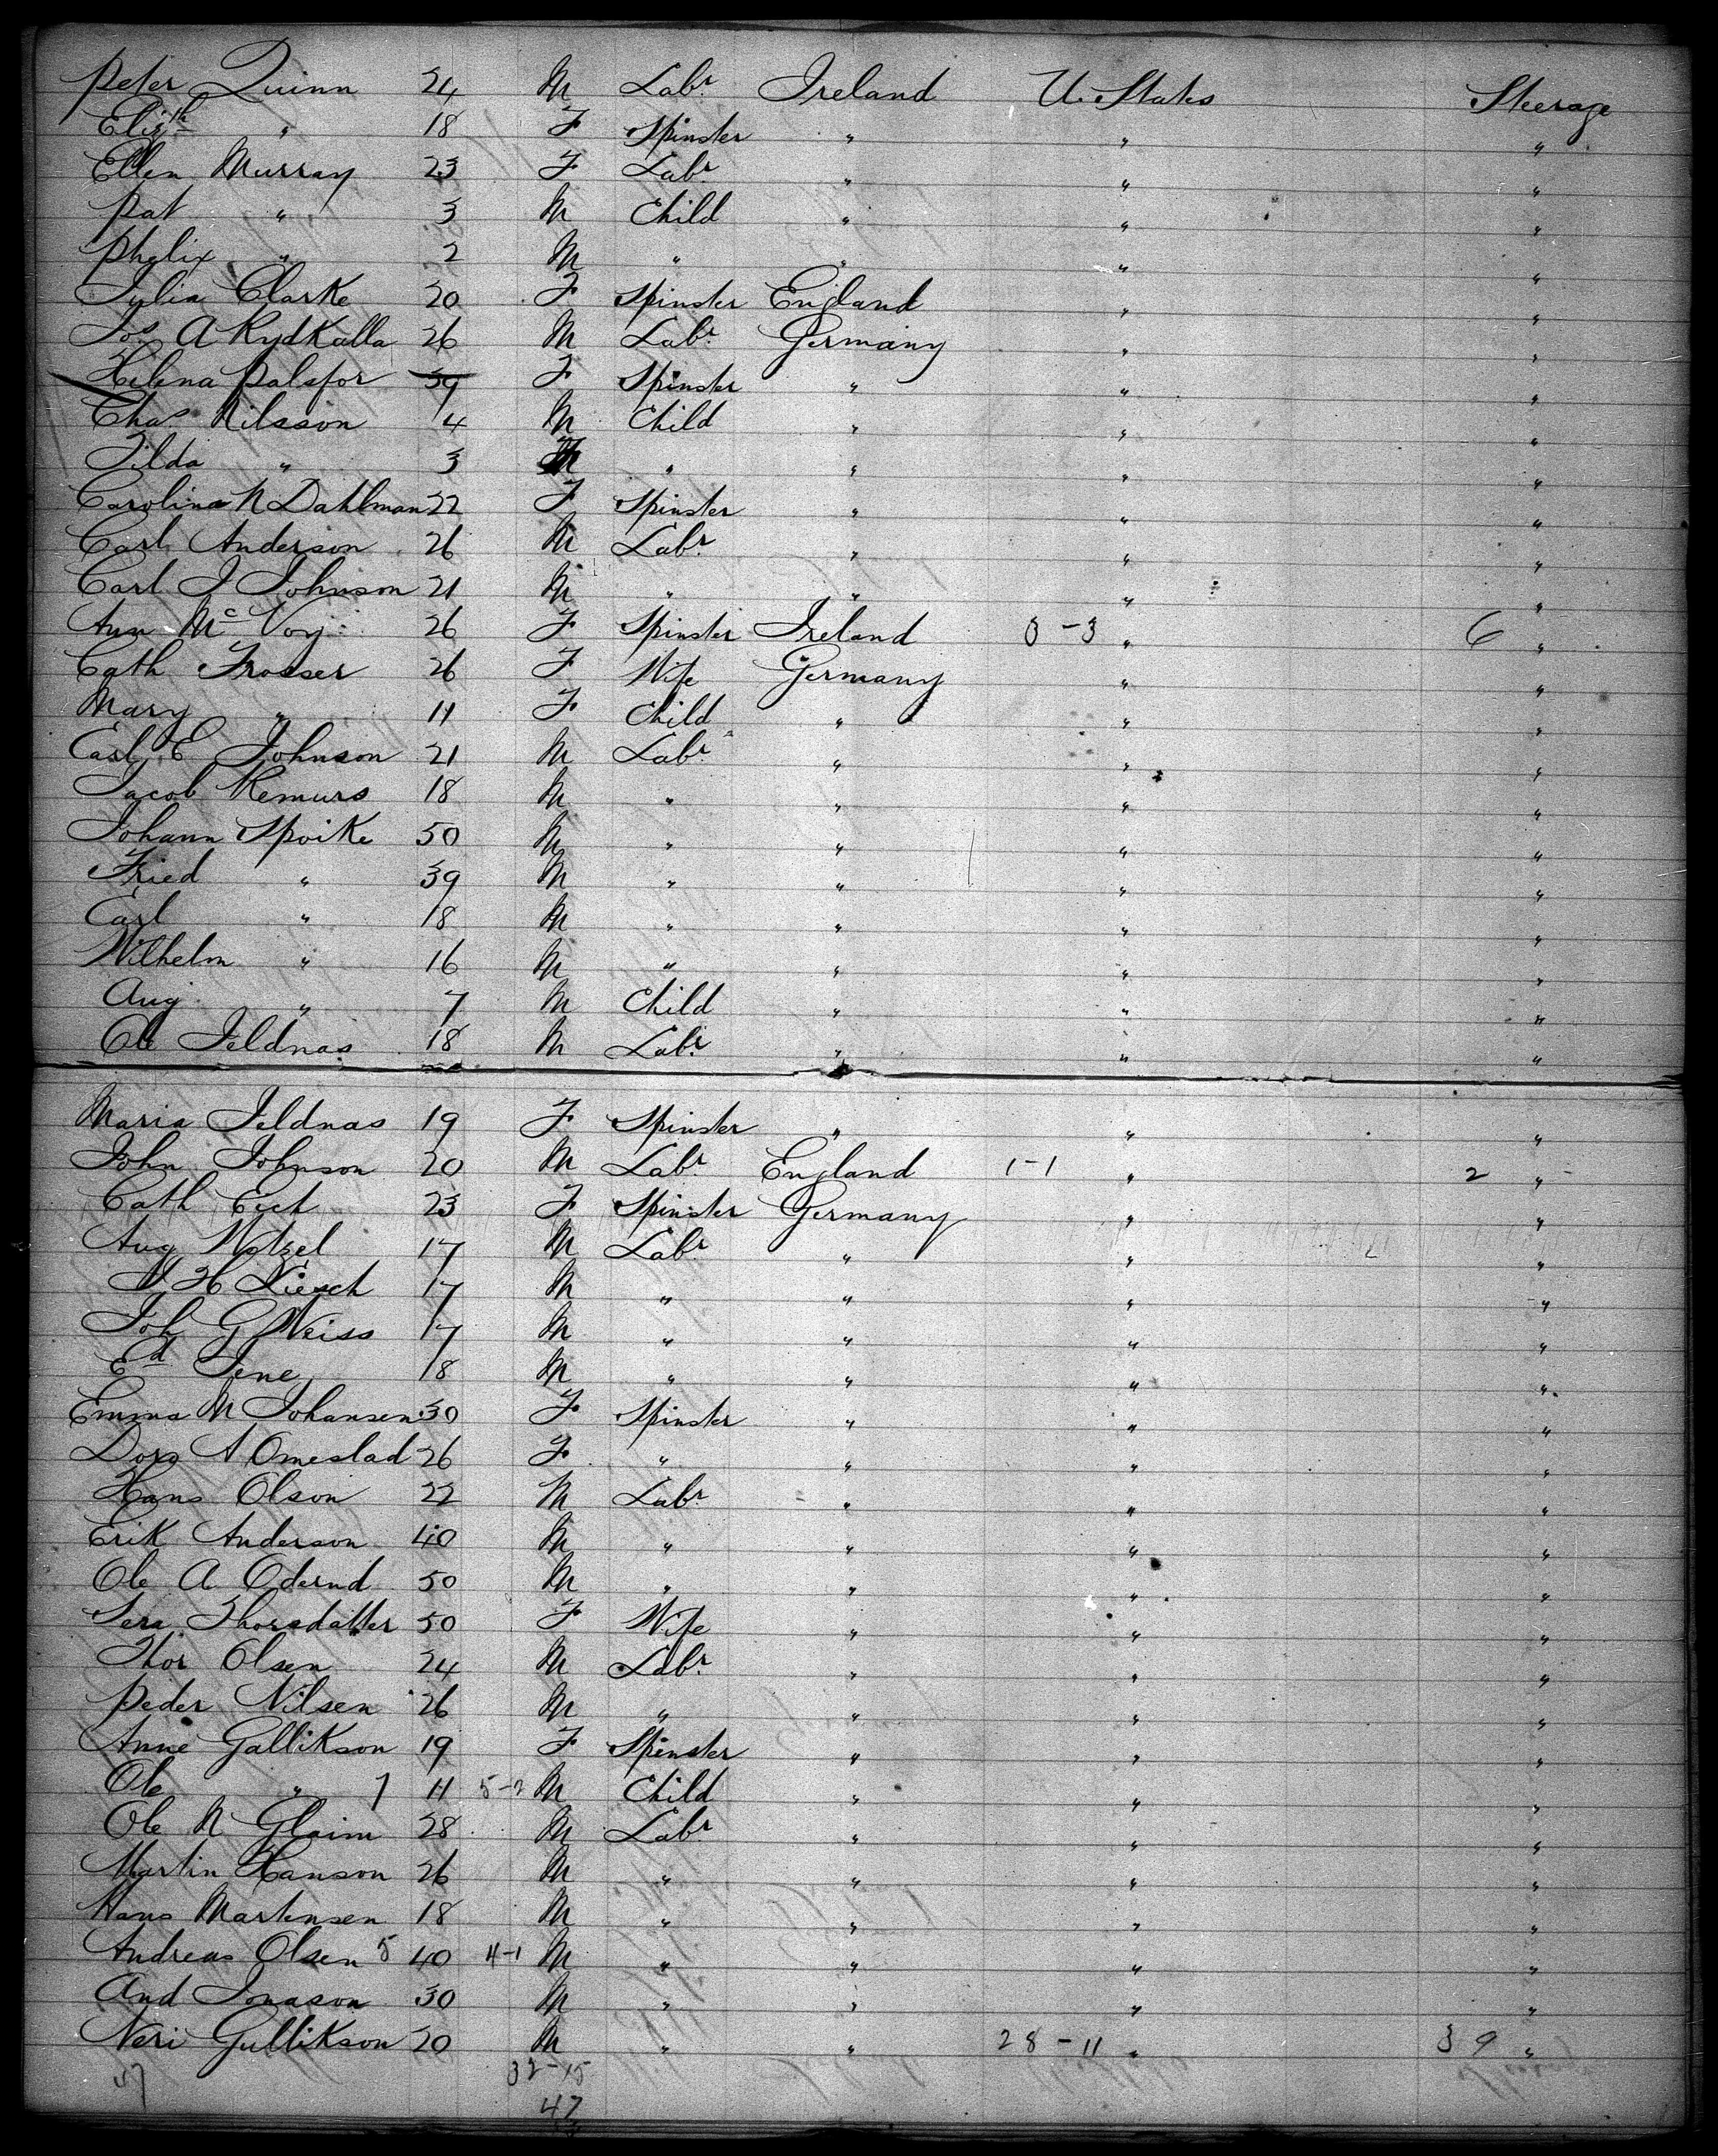 Peter Quinn 24 M Labr Ireland U. States Steerage
Elizth " 18 F Spinster " " "
Ellen Murray 23 F Labr " " "
Pat " 3 M Child " " "
Phelix " 2 M " " " "
Julia Clarke 20 F Spinster England " "
Jos A Rydkalla 26 M Labr Germany " "
Helena Palsfor 39 F Spinster " " "
Chas Nilsson 4 M Child " " "
Tilda " 3 " " " "
Carolina N Dahlman 22 F Spinster " " "
Carl Anderson 26 M Labr " " "
Carl J Johnson 21 M " " " "
Ann McVoy 26 F Spinster Ireland 3-3 " 6 "
Cath Frosser 26 F Wife Germany " "
Mary " 11 F Child " " "
Carl E Johnson 21 M Labr " " "
Jacob Remurs 18 M " " " "
Johann Spoike 50 M " " " "
Fried " 39 M " " " "
Carl " 18 M " " " "
Wilhelm " 16 M " " " "
Aug " 7 M Child " " "
Ole Jeldnas 18 M Labr " " "
Maria Jeldnas 19 F Spinster " " "
John Johnson 20 M Labr England 1-1 " 2 "
Cath Eich 23 F Spinster Germany " "
Aug Wotzel 17 M Labr " " "
J H Niesch 17 M " " " "
Joh G Weiss 17 M " " " "
Ed Jene 18 M " " " "
Emma M Johansen 30 F Spinster " " "
Dora A Omestad 26 F " " " "
Hans Olson 22 M Labr " " "
Erik Anderson 40 M " " " "
Ole A Odernd 50 M " " " "
Sera Thorsdatter 50 F Wife " " "
Thor Olsen 24 M Labr " " "
Peder Nilsen 26 M " " " "
Anne Gallikson 19 F Spinster " " "
Ole " 7 11 5-2 M Child " " "
Ole N Glaim 28 M Labr " " "
Martin Hanson 26 M " " " "
Hans Martensen 18 M " " " "
Andreas Olsen 5 40 4-1 M " " " "
And Jonason 30 M " " " "
Neri Gullikson 20 M " " 28-11 " 39 "
32-15
47